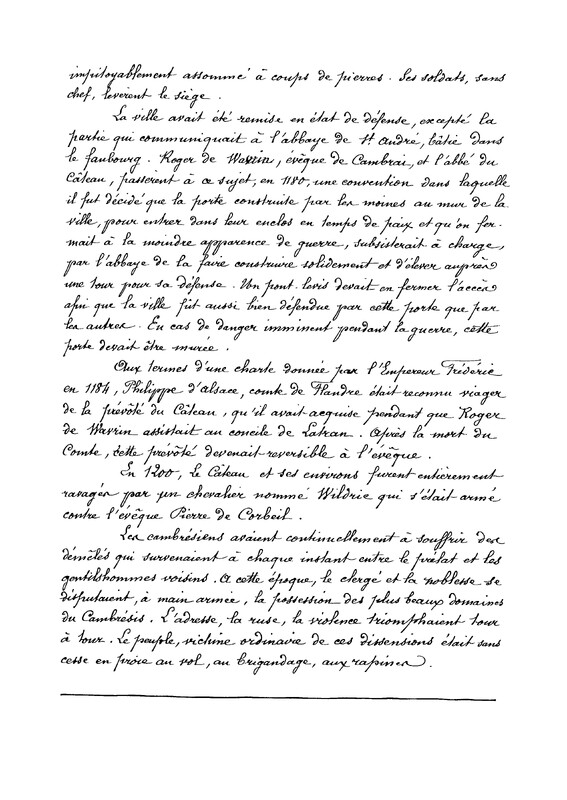 impitoyablement assommé à coups de pierres. Ses soldats, sans
chef, levèrent le siège.
La ville avait été remise en état de défense, excepté la
partie qui communiquait à l'abbaye de St André, bâtie dans
le faubourg. Roger de Wavrin, évêque de Cambrai, et l'abbé du
Câteau, passèrent à ce sujet, en 1180, une convention dans laquelle
il fut décidé que la porte construite par les moines au mur de la
ville, pour entrer dans leur enclos en temps de paix et qu'on fer-
mait à la moindre apparence de guerre, subsisterait à charge,
par l'abbaye de la faire construire solidement et d'élever auprès
une tour pour sa défense. Un pont-levis devait en fermer l'accès
afin que la ville fût aussi bien défendue par cette porte que par
les autres. En cas de danger imminent pendant la guerre, cette
porte devait être murée.
Aux termes d'une charte donnée par l'Empereur Fréderic
en 1184, Philippe d'alsace, comte de Flandre était reconnu viager
de la prévôté du Câteau, qu'il avait acquise pendant que Roger
de Wavrin assistait au concile de Latran. Après la mort du
Comte, cette prévôté devenait reversible à l'évêque.
En 1200, Le Câteau et ses environs furent entièrement
ravagés par un chevalier nommé Wildric qui s'était armé
contre l'évêque Pierre de Corbeil.
Les cambrésiens avaient continuellement à souffrir des
démêlés qui survenaient à chaque instant entre le prélat et les
gentilshommes voisins. A cette époque, le clergé et la noblesse se
disputaient, à main armée, la possession des plus beaux domaines
du Cambrésis. L'adresse, la ruse, la violence triomphaient tour
à tour. Le peuple, victime ordinaire de ces dissensions était sans
cesse en proie au vol, au brigandage, aux rapines.